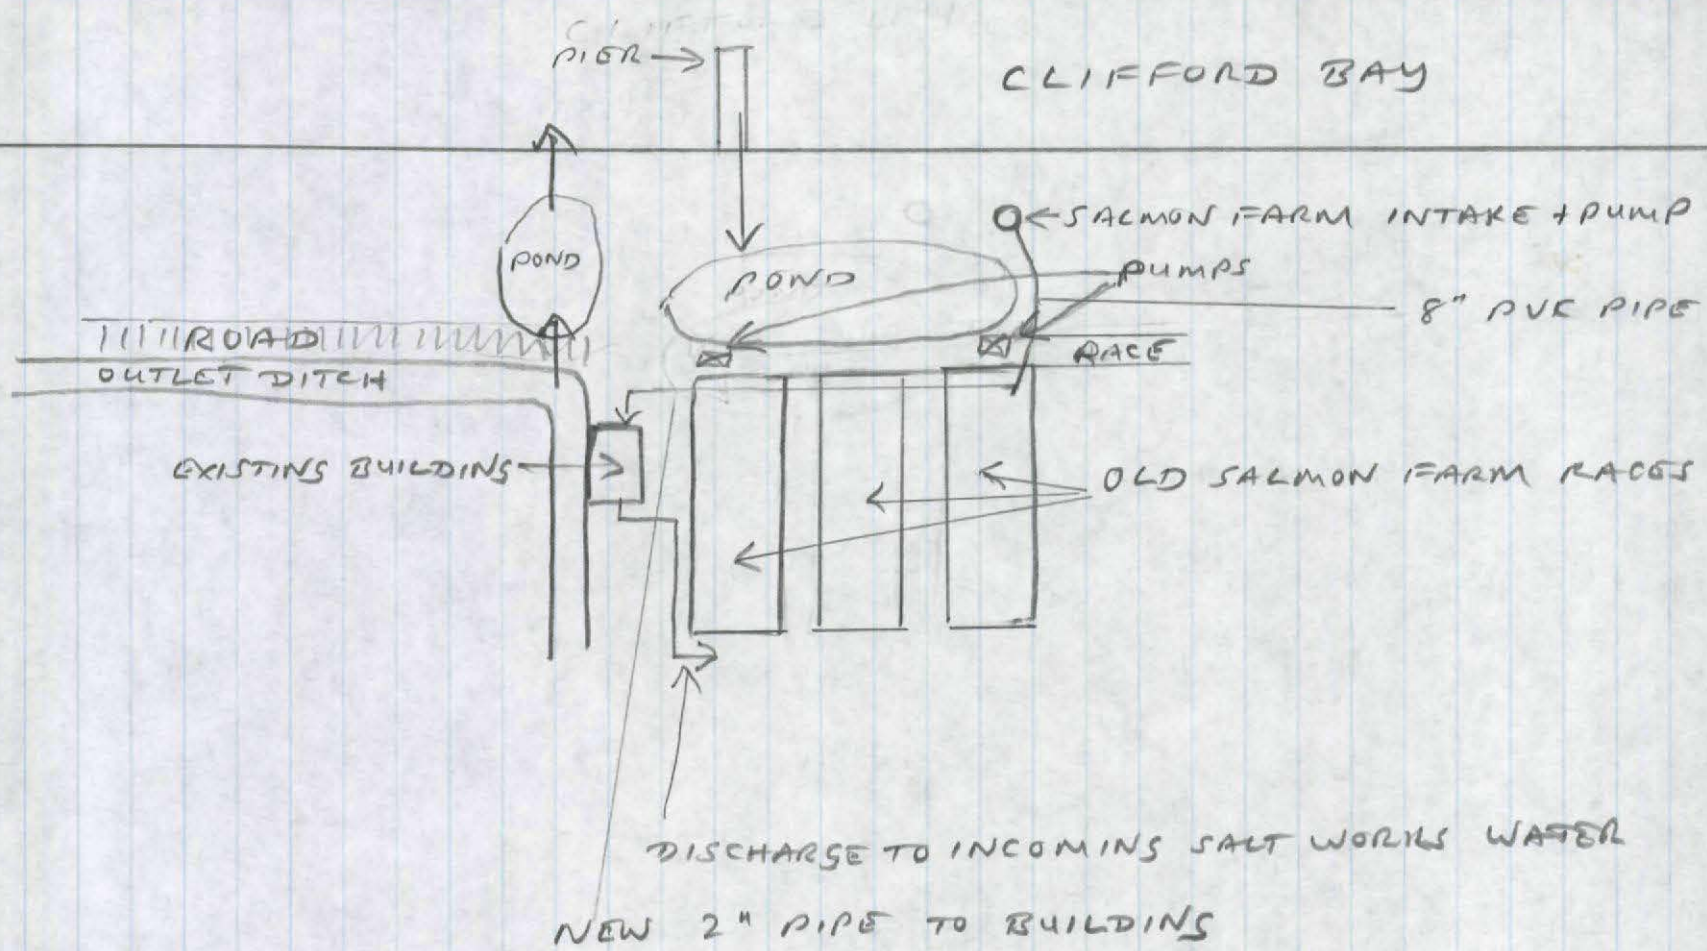 PIER
CLIFFORD BAY
SALMON FARM INTAKE + PUMP
POND
POND
PUMPS
8" PVC PIPE
ROAD
RACE
OUTLET DITCH
EXISTING BUILDING
OLD SALMON FARM RACES
DISCHARGE TO INCOMING SALT WORKS WATER
NEW 2" PIPE TO BUILDING